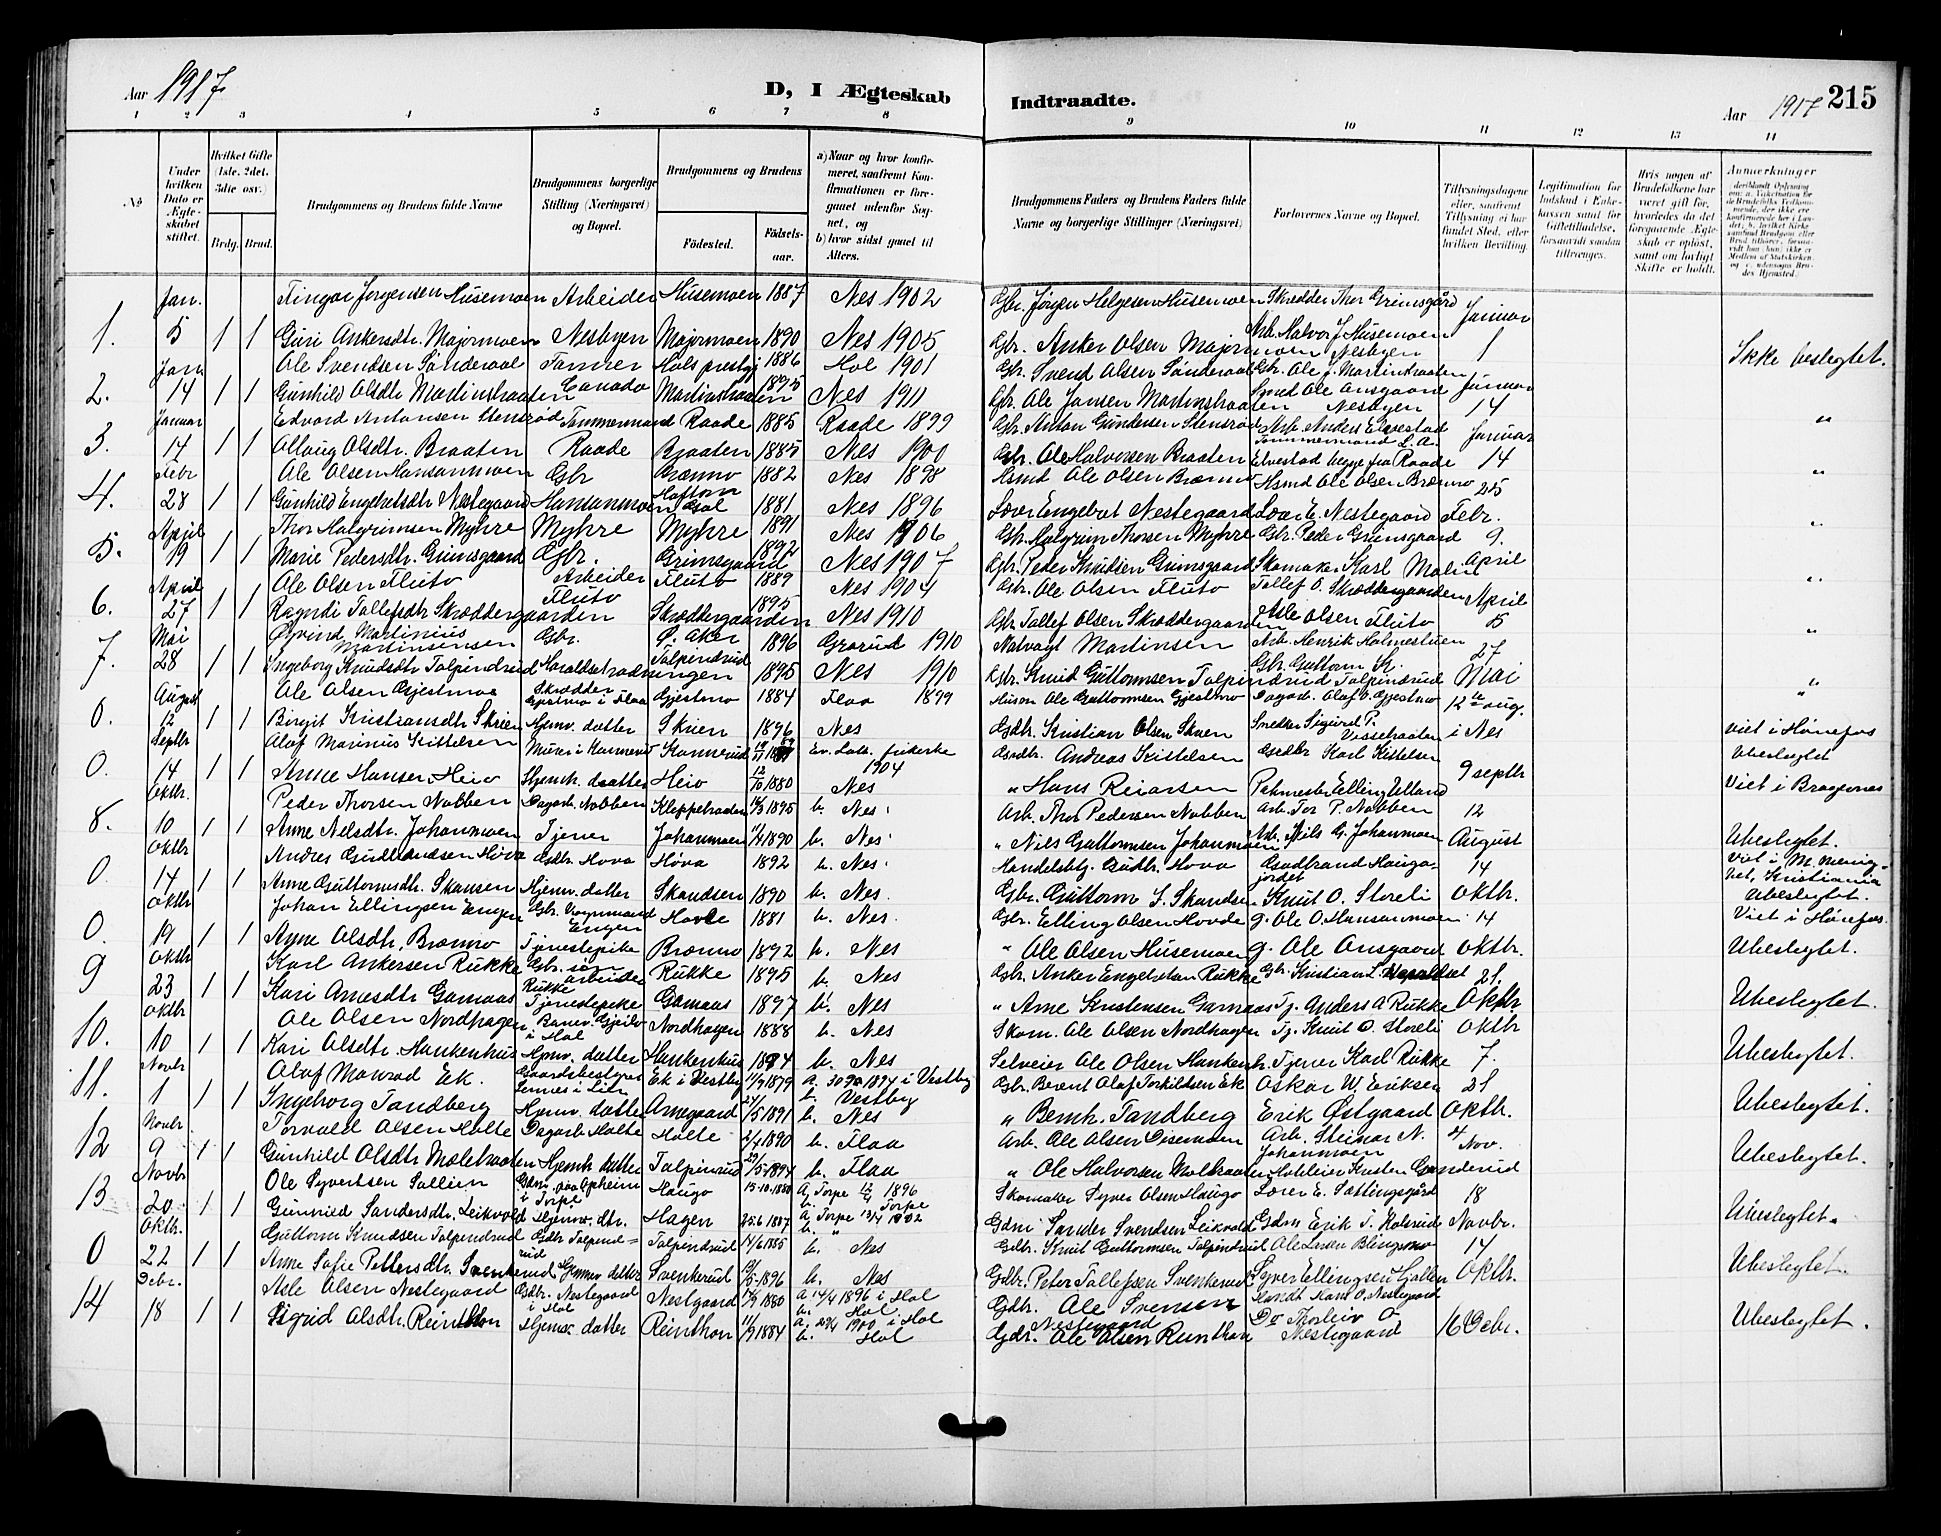 Aar 1917
D, I Ægteskab
Indtraadte.
Aar 1917 215
1 2 3 4 5 6 7 8 9 10 11 12 13 14
No
Under hvilken Dato er Ægteskabet stiftet.
Hvilket Gifte (1ste. 2det. 3die osv.)
Brdg. Brud.
Brudgommens og Brudens fulde Navne
Brudgommens borgerlige Stilling (Næringsvei) og Bopæl.
Brudgommens og Brudens
Födested.
Födselsaar.
a) Naar og hvor konfirmeret, saafremt Konfirmationen er foregaaet udenfor Sognet, og b) hvor sidst gaaet til Alters.
Brudgommens Faders og Brudens Faders fulde Navne og borgerlige Stillinger (Næringsvei)
Forlovernes Navne og Bopæl.
Tillysningsdagene eller, saafremt Tillysning ei har fundet Sted, eller hvilken Bevilling.
Hvis nogen af Brudefolkene har været gift før, hvorledes da det foregaaende Ægteskab er opløst, samt om lovligt Skifte er holdt.
Anmærkninger
1. Jan. 5 1 1 Fingar Jørgensen Husemoen Arbeider Husemoen 1887 Nes 1902 Gbr. Jørgen Helgesen Husemoen Skrædder Thor Grimsgård Januar
Guri Ankersdtr. Majormoen Nesbyen Majormoen 1890 Nes 1905 Gbr. Anker Olsen Majormoen Arb. Halvor J. Husemoen Nesbyen 1 Ikke beslegtet.
2. Jan 14 1 1 Ole Svendsen Sønderaal Farmer Hols prestgj 1886 Hol 1901 Gbr. Svend Olsen Sønderaal Gbr. Ole J. Martinsbraaten Januar
Gunhild Olsdtr Martinsbraaten Canada Martinsbraaten 1895 Nes 1911 Gbr. Ole Jansen Martinsbraaten Smed Ole Ansgaard Nesbyen 14 "
3. Januar 14 1 1 Edvard Antonsen Stensrød Tømmermand Raade 1885 Raade 1899 Gbr. Anton Gundersen Stensrød Arb. Anders Elvestad Januar
Ollaug Olsdtr. Braaten Raade Braaten 1885 Nes 1900 Gbr. Ole Halvorsen Braaten Tømmermand L. A. Elvestad begge fra Raade 14 "
4. Febr 28 1 1 Ole Olsen Hansanmoen Gbr Bræmo 1882 Nes 1898 Hsmd Ole Olsen Bræmo Hsmd Ole Olsen Bræmo 25
Gunhild Engebretsdtr Nestegaard Hansanmoen Gol 1881 Nes 1896 Lærer Engebret Nestegaard Lær E. Nestegaard Febr. "
5. April 19 1 1 Thor Halgrimsen Myhre Myhre Myhre 1891 Nes 1906 Gbr. Halgrim Thorsen Myhre Gbr. Peder Grimsgaard 9.
Marie Pedersdtr. Grimsgaard Gbr. Grimsgaard 1892 Nes 1907 Gbr. Peder Knudsen Grimsgaard Skomaker Karl Moen April "
6. April 27 1 1 Ole Olsen Fluto Arbeider Fluto 1889 Nes 1904 Gbr. Ole Olsen Fluto Tollef O. Skræddergaarden April
Ragndi Tollefsdtr Skræddergaarden Fluto Skræddergaarden 1895 Nes 1910 Gbr Tollef Olsen Skræddergaarden Asle Olsen Fluto 5 "
7. Mai 28 1 1 Øivind Martinius Martinsensen Gbr. Ø. Aker 1896 Grorud 1910 Natvagt Martinsen Arb. Henrik Holmestuen 27
Ingeborg Knudsdtr Tolpindrud Haraldsetrødningen Tolpindrud 1895 Nes 1910 Gbr. Knud Guttormsen Tolpindrud Gbr. Guttorm K. Tolpindrud Mai "
0. August 12 1 1 Ole Olsen Gjestmoe Skrædder Gjestmo i Flaa Gjestmo 1884 Flaa 1899 Husm Ole Guttormsen Gjestmo Dagarb. Olaf O. Gjestmo 12te aug.
Birgit Kristiansdtr Skrien Hjemv. datter Skrien 1896 Nes Gdbr. Kristian Olsen Skrien Snedker Sigurd P. i Nes viet i Hønefos
0. Septbr 14 1 1 Olaf Marinus Kittelsen Murer i Kannerud Kannerud Ev. Luth. frikirke 1904 Gaardbr. Andreas Kittelsen Gaardbr Karl Kittelsen 9 septbr Ubeslegtet
Anne Hansen Heio Hjemh. datter Heio 12/10 1880 Nes " Hans Reiarsen Pakmester Elling Ulland Viet i Bragernes
8. Oktbr. 10 1 1 Peder Thorsen Nobben Dagarb. Nobben Kleppebraaten 14/3 1895 b. Nes Arb. Thor Pedersen Nobben Arb. Tor P. Nobben 12
Anne Nelsdtr. Johanmoen Tjener Johanmoen 11/4 1890 b. Nes " Niels Guttormsen Johanmoen Arb. Nils G. Johanmoen August Ubeslegtet.
0. Oktbr 14 1 1 Andres Gudbrandsen Hova Gdbr. Hova Hova 1892 b. Nes Handelsbtj. Gudbr. Hova Gudbrand Haugajordet 14 Viet i M. menighet, Kristiania
Anne Guttormsdtr. Skansen Hjemv. datter Skandsen 1890 b. Nes. Gbr. Guttorm S. Skandsen Knut O. Storeli Oktbr. Ubeslegtet.
0. Oktbr 19 1 1 Johan Ellingsen Engen Gbr. Vognmand Engen Hovde 1881 b. Nes. Gbr. Elling Olsen Hovde g. Ole O. Hansanmoen 14 Viet i Hønefos.
Anne Olsdtr. Bræmo Tjenestepike Bræmo 1892 b. Nes " Ole Olsen Husemoen g. Ole Ansgaard Oktbr. Ubeslegtet.
9 Oktbr 23 1 1 Karl Ankersen Rukke Gbr. sön arbuide Rukke Rukke 1895 b. Nes Gbr. Anker Engebretsen Rukke Gbr. Kristian L. 21.
Kari Arnesdtr Garnaas Tjenestepike Garnaas 1897 b. Nes " Arne Kristensen Garnaas Tj. Anders A Rukke Oktbr Ubeslegtet.
10. Oktbr 10 1 1 Ole Olsen Nordhagen Banev. Gjeilo i Hol Nordhagen 1888 b. Nes Skom. Ole Olsen Nordhagen Tj. Knut O. Storeli Oktbr
Kari Olsdtr. Hankenhus Hjmv. datter Hankenhus 1884 b. Nes Selveier Ole Olsen Hankenh. Tjener Karl Rukke 7. Ubeslegtet.
11. Novbr 1 1 1 Olaf Monrad Ek. Gaardsbestyrer Ek i Vestby 11/9 1879 a. 30/9 1894 i Vestby b. Vestby Gbr. Bernt Olaf Torkildsen Ek Oskar W. Eriksen 21
Ingeborg Tandberg Hjemv. datter Arnegaard 24/5 1891 b. Nes " Bernh. Tandberg Erik Østgaard Oktbr. Ubeslegtet.
12 Novbr 9 1 1 Torvald Olsen Holte Dagarb. Holte Holte 2/7 1890 b. Flaa Arb. Ole Olsen Disemoen Arb. Steinar N. Johanmoen 4 Nov.
Gunhild Olsdtr Molebraaten Hjemh. datter Tolpinrud 29/5 1894 b. Flaa " Ole Halvorsen Molbraaten Hotleier Kristen Gunderud Ubeslegtet.
13 Novbr 20 1 1 Ole Syvertsen Sollien Gdm. paa Opheim i Torpe Haugo 13-10-1880 A, Torpe 12/4 1896 b. Torpe Skomaker Syver Olsen Haugo Lærer E. Sattingsgård 18
Gunnild Sandersdtr. Leikvold Hjemv. dtr. Hagen 25.6 1887 A, Torpe 13/4 1902 b. " Gdm Sander Svendsen Leikvold Gdm Erik T. Holsrud Novbr. Ubeslegtet.
0 Oktbr. 22 1 1 Guttorm Knudsen Tolpendrud Gdbr Tolpendrud Tolpindrud 14/6 1885 b. Nes Gdbr. Knut Guttormsen Tolpindrud Ole Larsen Blingsmo 14
Anne Sofie Pettersdtr. Svenkerud Hjemv datter Svenkerud 19/5 1896 b. Nes Gdbr. Peter Tollefsen Svenkerud Syver Ellingsen Ljøllen Oktbr. Ubeslegtet.
14 Debr. 18 1 1 Asle Olsen Nestegaard Gdbr. Nestegaard i Hol Nestgaard 14/9 1880 A 14/4 1896 i Hol b. Hol Gdbr. Ole Svensen Nestegaard Landh Hans O. Nestegaard
Sigrid Olsdtr. Reinthon Hjemv. datter Reinthon 11/9 1884 a. 29/4 1900 i Hol b. Hol Gdr. Ole Olsen Runthon Do Thorleiv O Nestegaard 16 Debr. Ubeslegtet.